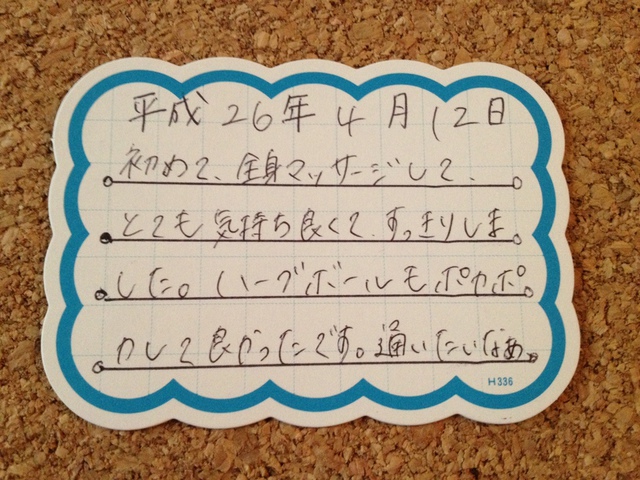 平成26年4月12日
初めて、全身マッサージして、
とても気持ち良くて、すっきりしま
した。ハーブボールもポカポ
カして良かったです。通いたいなあ。
H336